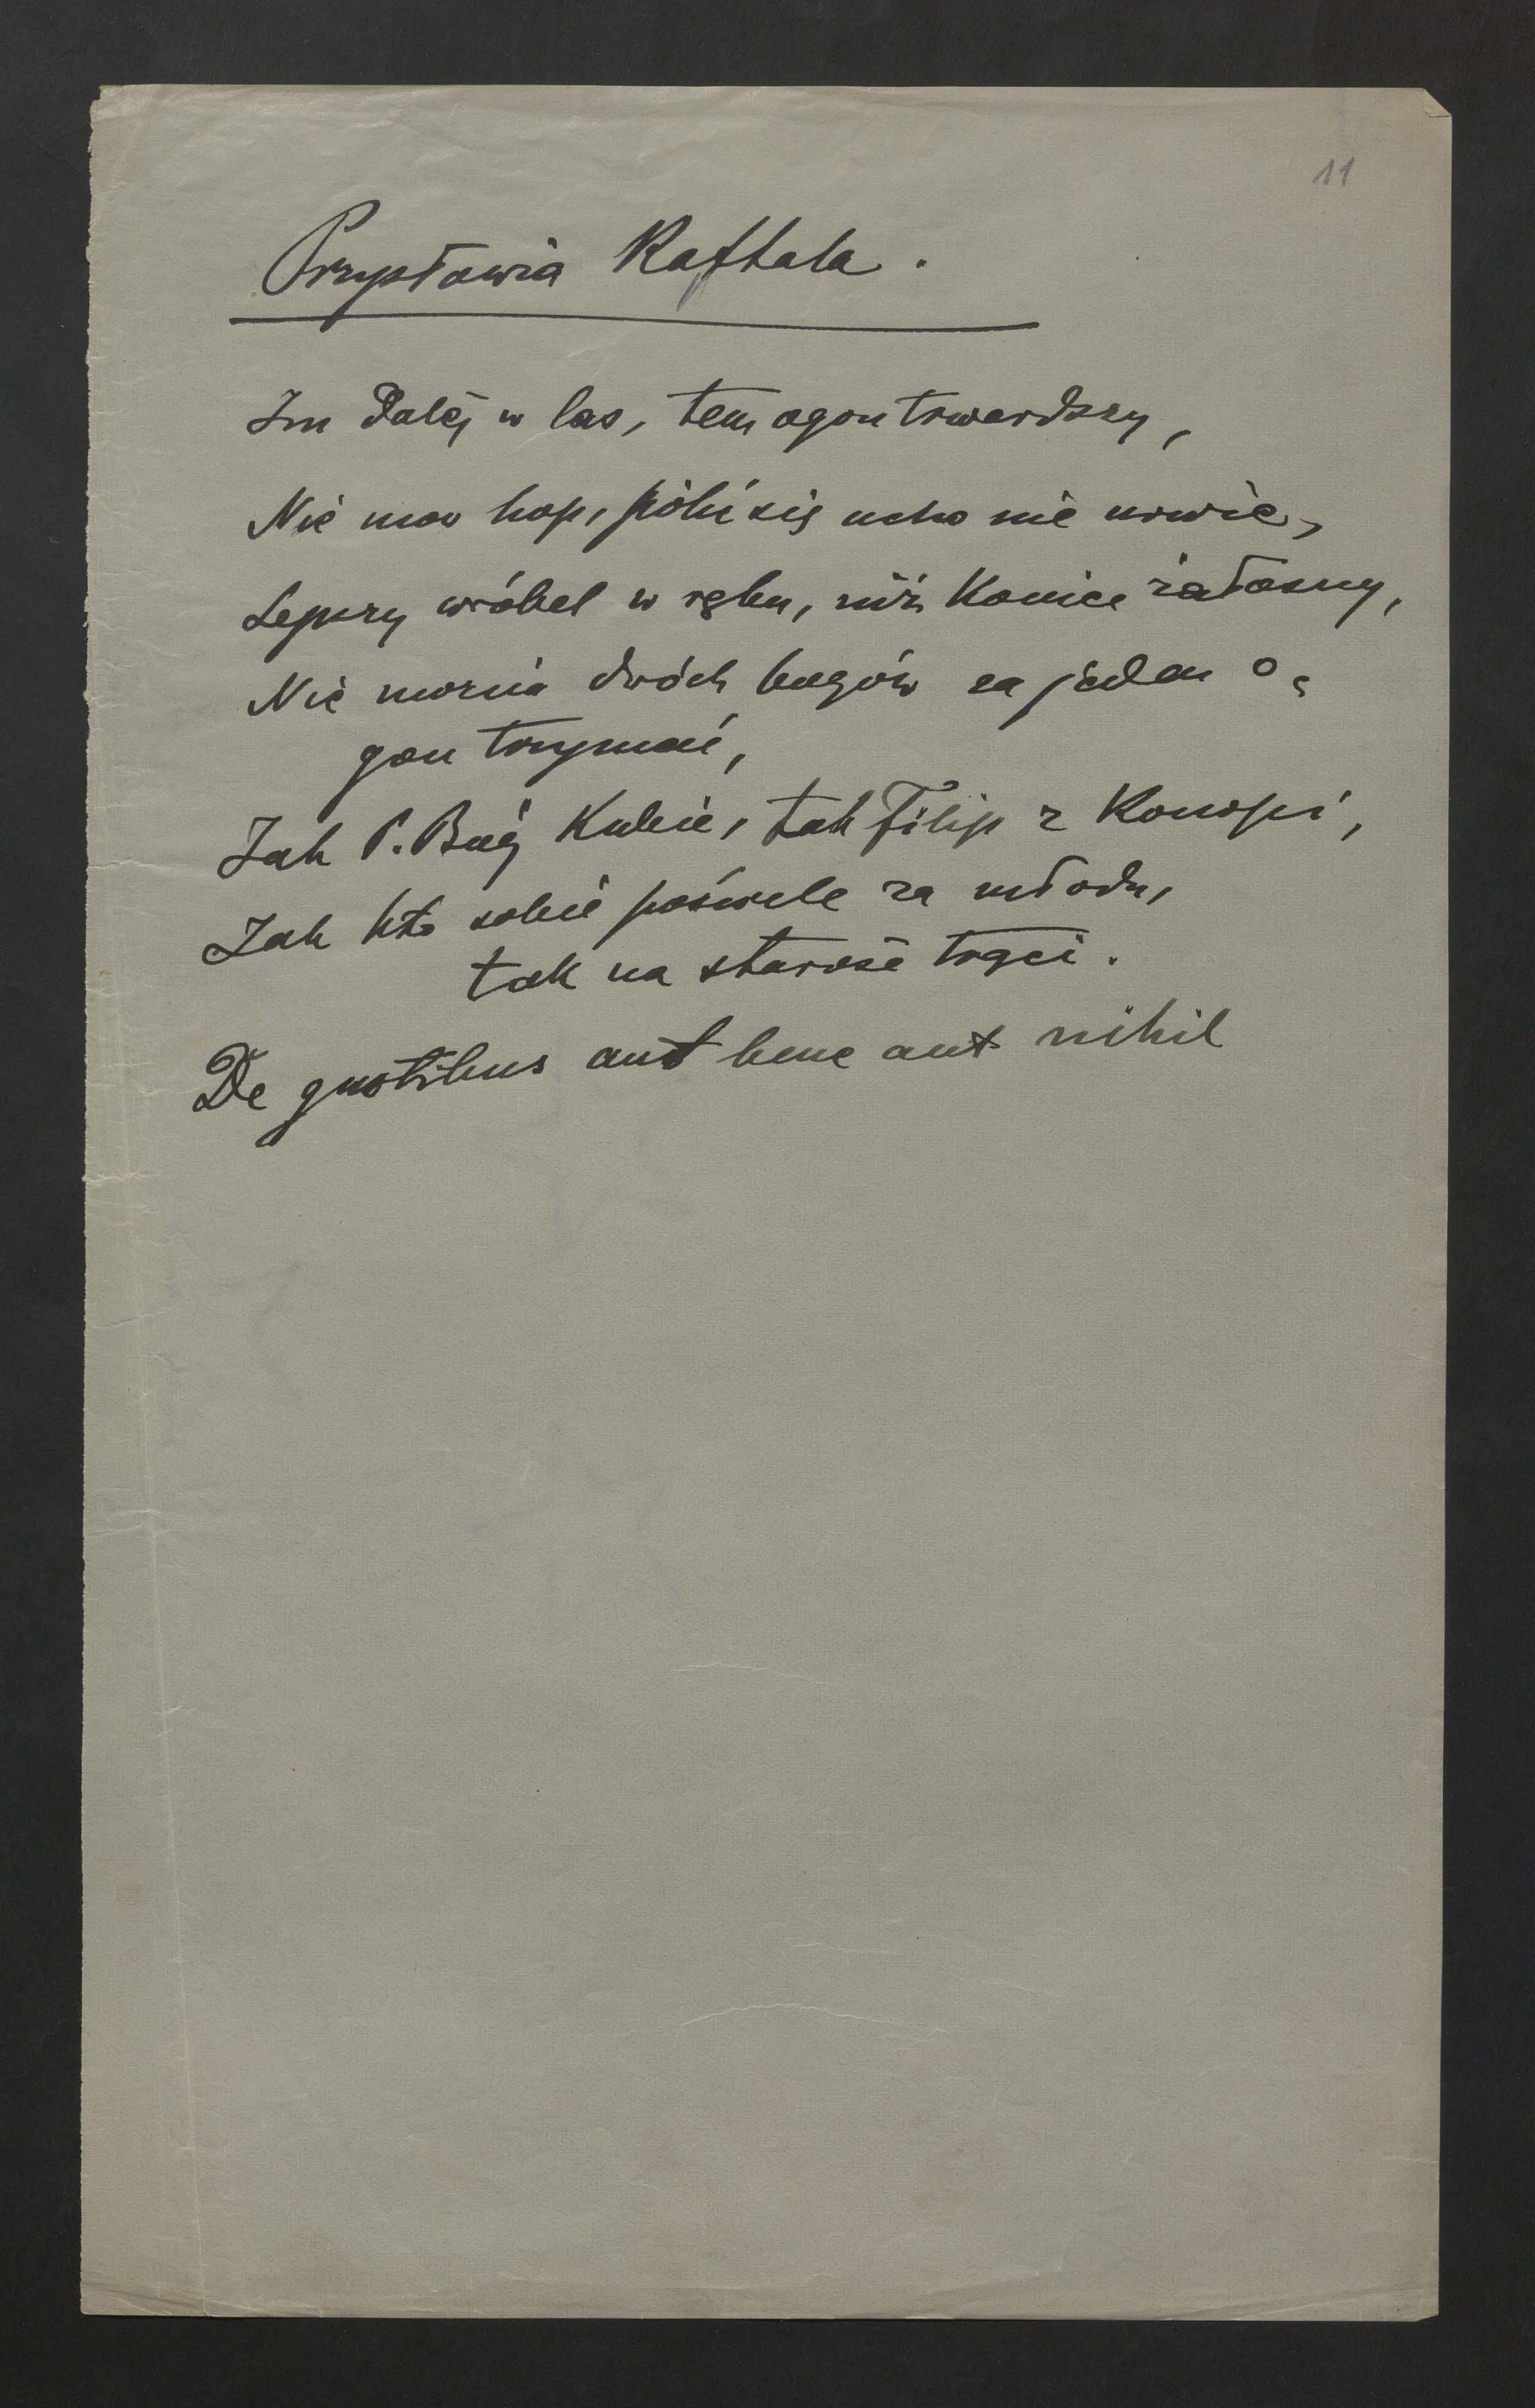 11
Przysłowia Raftala.
Im dalej w las, tem ogon twardszy,
Nie mów hop, póki się ucho nie urwie,
Lepszy wróbel w ręku, niż koniec żałosny,
Nie można dwóch bogów za jeden o-
gon trzymać,
Jak P. Bóg Kubie, tak Filip z Konopi,
Jak kto sobie pościele za młodu,
tak na starość trąci.
De gustibus aut bene aut nihil